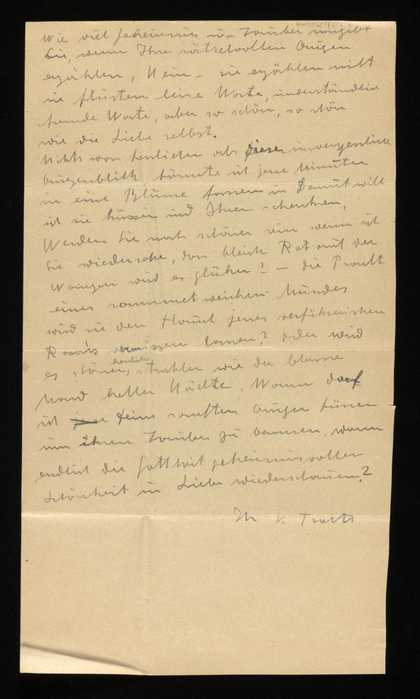 Wie viel Geheimnis u. Zauber umgibt
Sie, wenn Ihre rätselvollen Augen
erzählen, Nein – sie erzählen nicht
sie flüstern leise Worte, unverständlich
fremde Worte, aber so schön, so schön
wie die Liebe selbst.
Nichts war herrlicher als dieser unvergessliche
Augenblick könnte ich jene Minuten
in eine Blume fassen in Demut will
ich sie küssen und Ihnen schenken,
Werden Sie noch schöner sein wenn ich
Sie wiedersehe, das bleich Rot auf den
Wangen wird es glühen? – die Pracht
eines sammetweichen Mundes
wird sie den Hauch jenes verführerischen
vermissen lassen? oder wird
es schöner, herrlicher strahlen wie der blasse
Mond heller Nächte, Wann darf
ich deine sanften Augen küssen
um ihren Zauber zu bannen, wann
endlich die Gottheit geheimnisvoller
Schönheit in Liebe wiederschauen?
Ihr